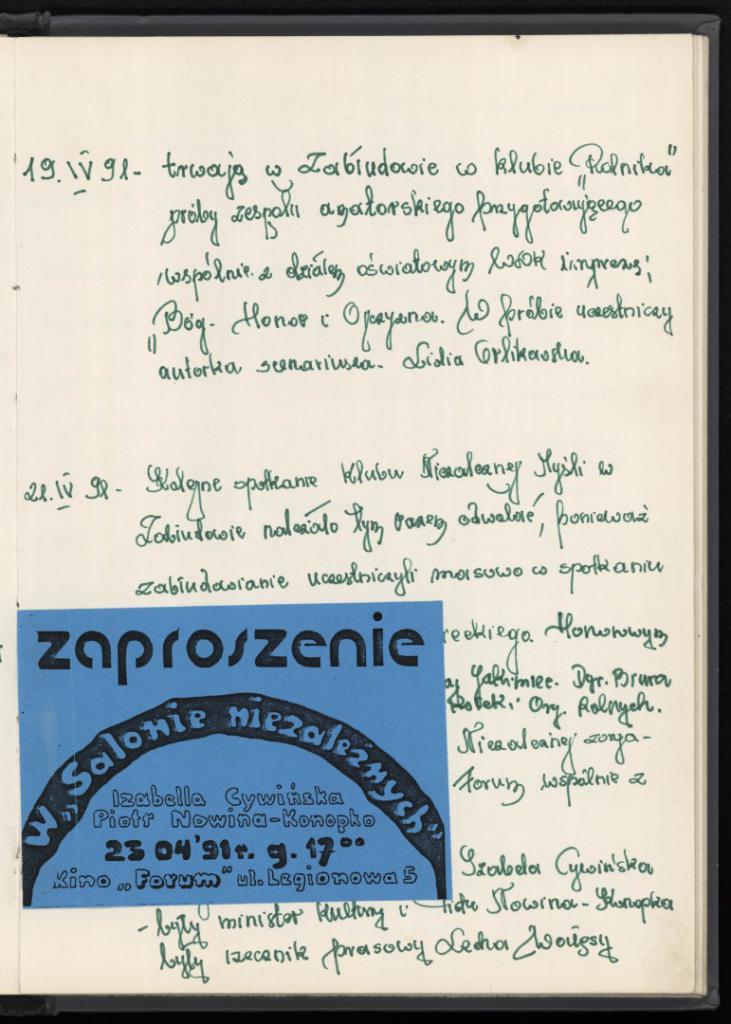 19. IV 91 - trwają w Zabłudowie w klubie "Rolnika"
próby zespołu agatorskiego przygotowującego
wspólnie z działem oświatowym WSOK imprezę;
"Bóg - Honor i Ojczyzna. W próbie uczestniczy
autorka scenariusza - Lidia Orlikowska.
21. IV 91 - Kolejne spotkanie Klubu Niezależnej Myśli w
Zabłudowie należało tym razem odwołać, ponieważ
zabłudowianie uczestniczyli masowo w spotkaniu
reckiego Honorowym
Dyr. Bruna
Org. Rolnych.
Niezależnej zorga-
Forum wspólnie z
Izabela Cywińska
- były minister kultury i Piotr Nowina-Konopka
były rzecznik prasowy Lecha Wałęsy
zaproszenie
W "Salonie niezależnych"
Izabella Cywińska
Piotr Nowina-Konopko
23 04'91 r. g. 17 00
Kino "Forum" ul. Legionowa 5